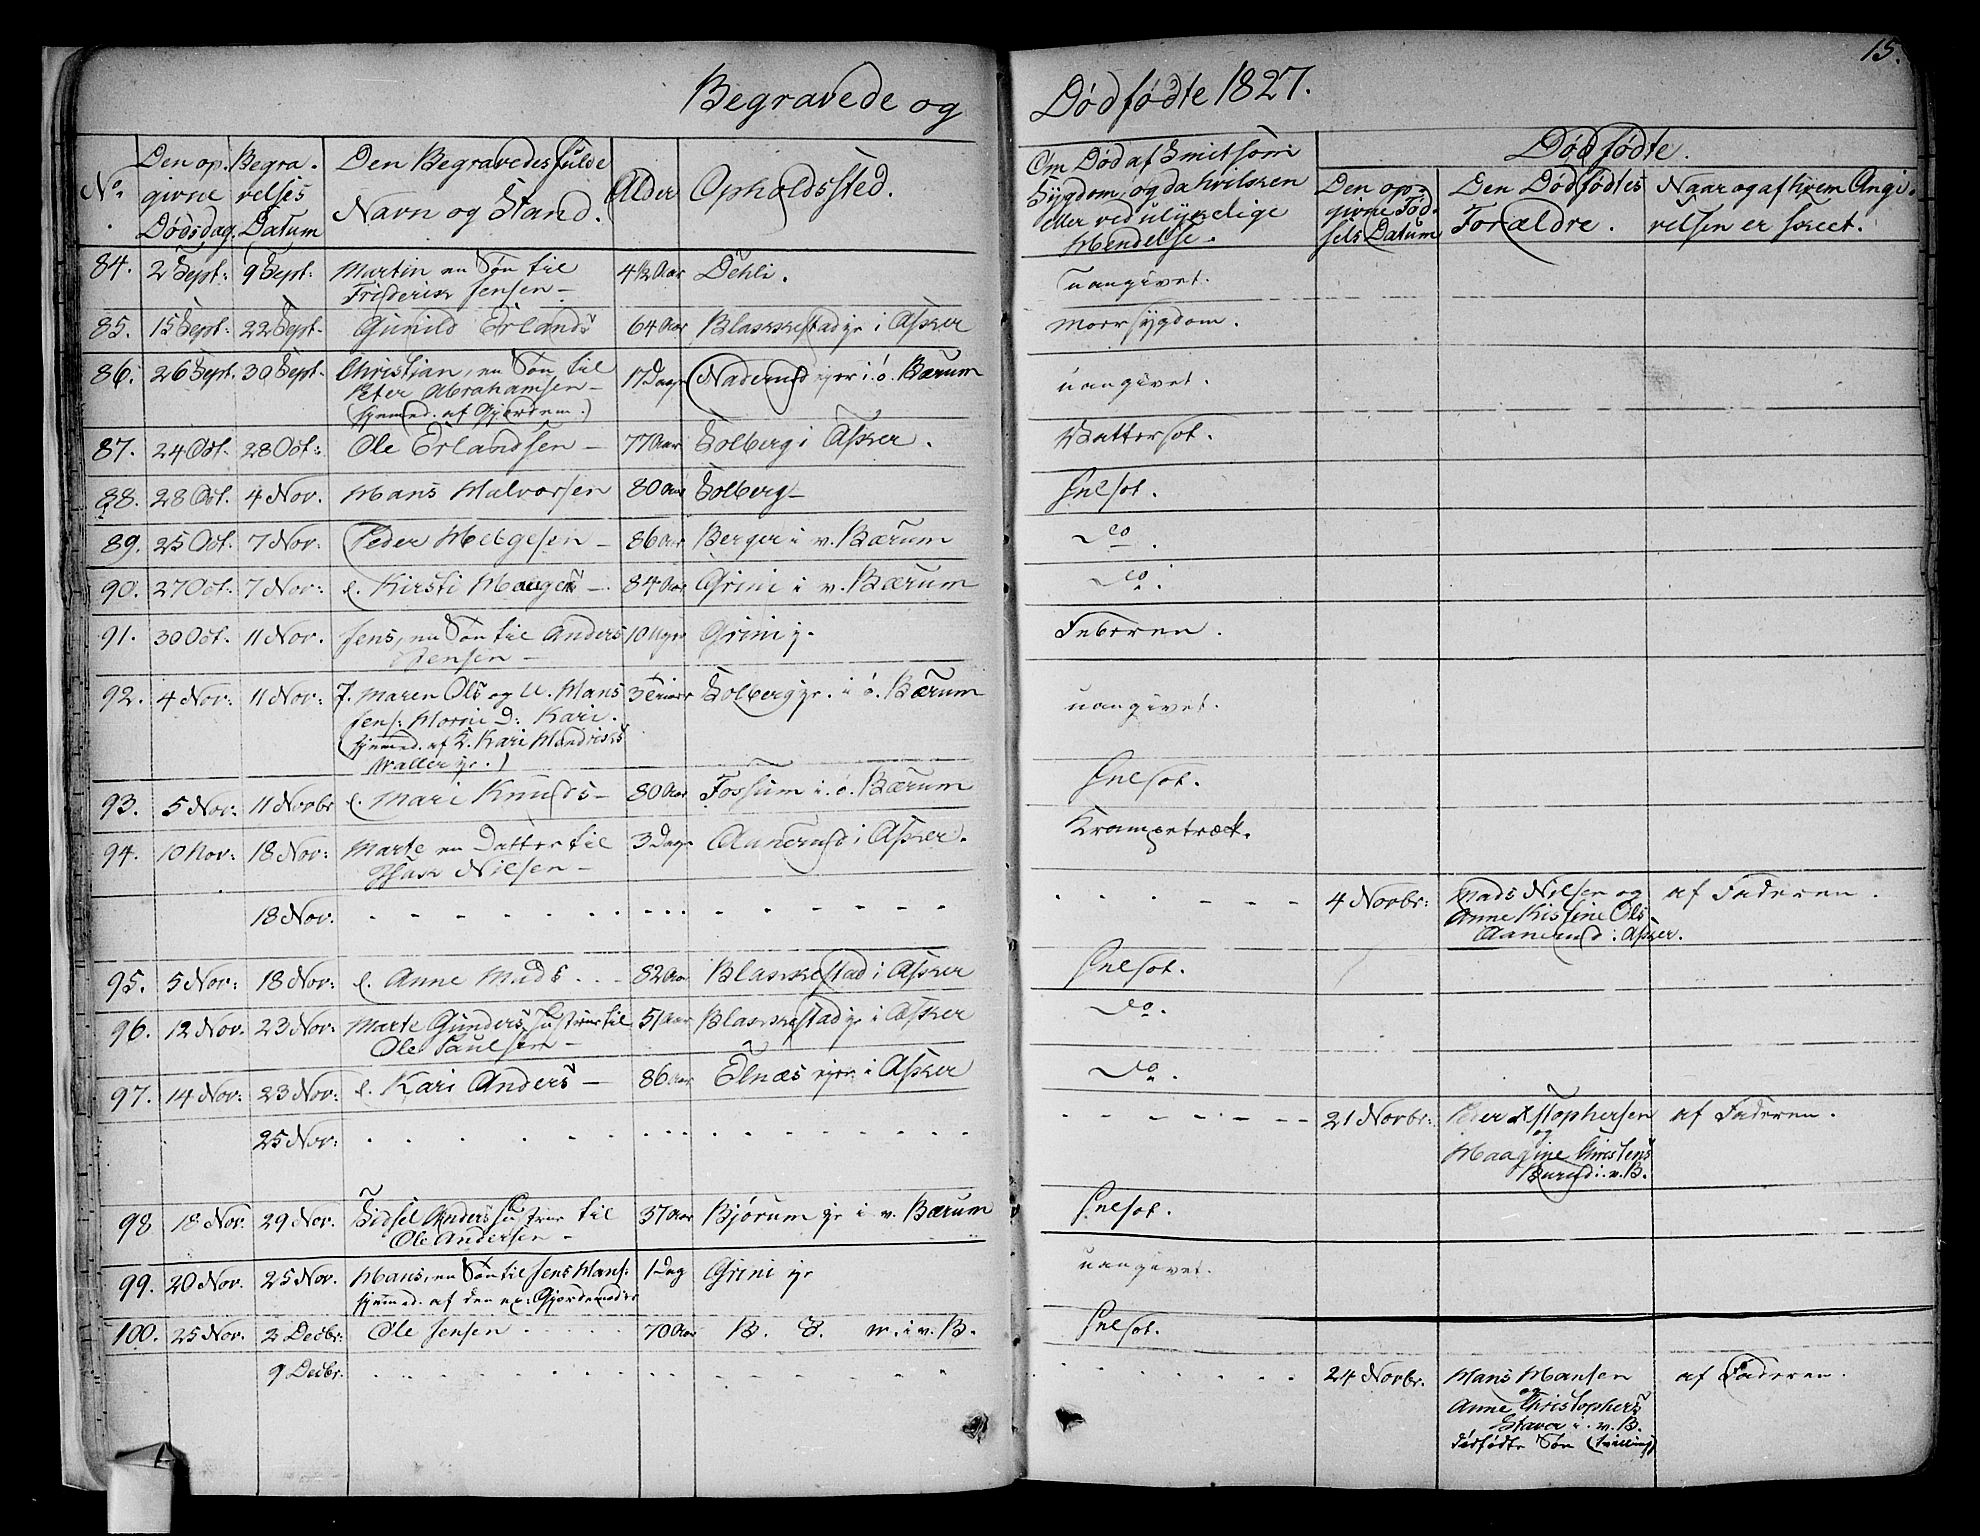 15.
Begravede og Dødfødte 1827.
No.
Den op-
givne
Dødsdag.
Begra-
velses
Datum
Den Begravedes fulde
Navn og Stand.
Alder
Opholdssted.
Om Død af Smitsom
Sygdom, og da hvilken
eller ved ulykkelige
Hendelse.
Dødfødte.
Den op-
givne Fød-
sels Datum
Den Dødfødtes
Forældre.
Naar og af hvem Angi-
velsen er skeet.
84. 2 Sept: 9 Sept: Martin en Søn til 4½ Aar Dehli. uangivet.
Friderik Jensen –
85. 15 Sept: 22 Sept. Gunild Erlands 64 Aar Blakkestad i Asker
86. 26 Sept. 30 Sept. Christian, en Søn til 17 Dage Nadderud i ø. Bærum uangivet.
Peter Abrahamsen –
(hjemmed. af Gjordem.)
87. 24 Oct. 28 Oct: Ole Erlandsen – 77 Aar Solberg i Asker. Vattersot.
88. 28 Oct. 4 Nov. Hans Halvorsen 80 Aar Solberg –
89. 25 Oct. 7 Nov: Peder Helgesen – 86 Aar Berger i v. Bærum Do.
90. 27 Oct. 7 Nov: e. Kirsti Hauges –. 84 Aar Grini i v. Bærum Do.
91. 30 Oct. 11 Nov. Jens, en Søn til Anders 10 Uger Grini Feberen.
Jensen –
92. 4 Nov: 11 Nov: Maren Ols og U. Hans Solberg i ø. Bærum uangivet.
Jens: D: Kari.
(hjemmed. af K. Kari
93. 5 Nov: 11 Novbr e. Mari Knuds – 80 Aar Fossum i ø. Bærum
94. 10 Nov: 18 Nov: Marte en Datter til 3 Dage Aanerud i Asker. Krampetræk.
Isak Nilsen –
18 Nov: 4 Novbr: Mads Nilsen og af Faderen.
Anne Kistine Ols
Aanerud i Asker.
95. 5 Nov: 18 Nov: e. Anne Mads. 82 Aar Blakkestad i Asker
96. 12 Nov. 23 Nov: Marte Gunders, Hustrue til 51 Aar Blakkestad i Asker Do.
Ole Paulsen –
97. 14 Nov: 23 Nov: e. Kari Anders – 86 Aar Elnæs i Asker Do.
25 Nov: 21 Novbr: Peder Xstophersen af Faderen.
og
Maagine Christens
Burud i v. B.
98. 18 Nov. 29 Nov. Sidsel Anders Hustrue til 37 Aar Bjørum i v. Bærum
Ole Andersen –
99. 20 Nov. 25 Nov. Hans, en Søn til Jens Hans: 1 Dag Grini uangivet.
hjemmed. af den ex: Gjordemoder
100. 25 Nov. 2 Decbr: Ole Jensen 70 Aar B. i v. B.
9 Decbr. 24 Novbr. Hans Hansen af Faderen.
og
Anne Christophers
Staver i v. B.
dødfødte Søn (tvilling)